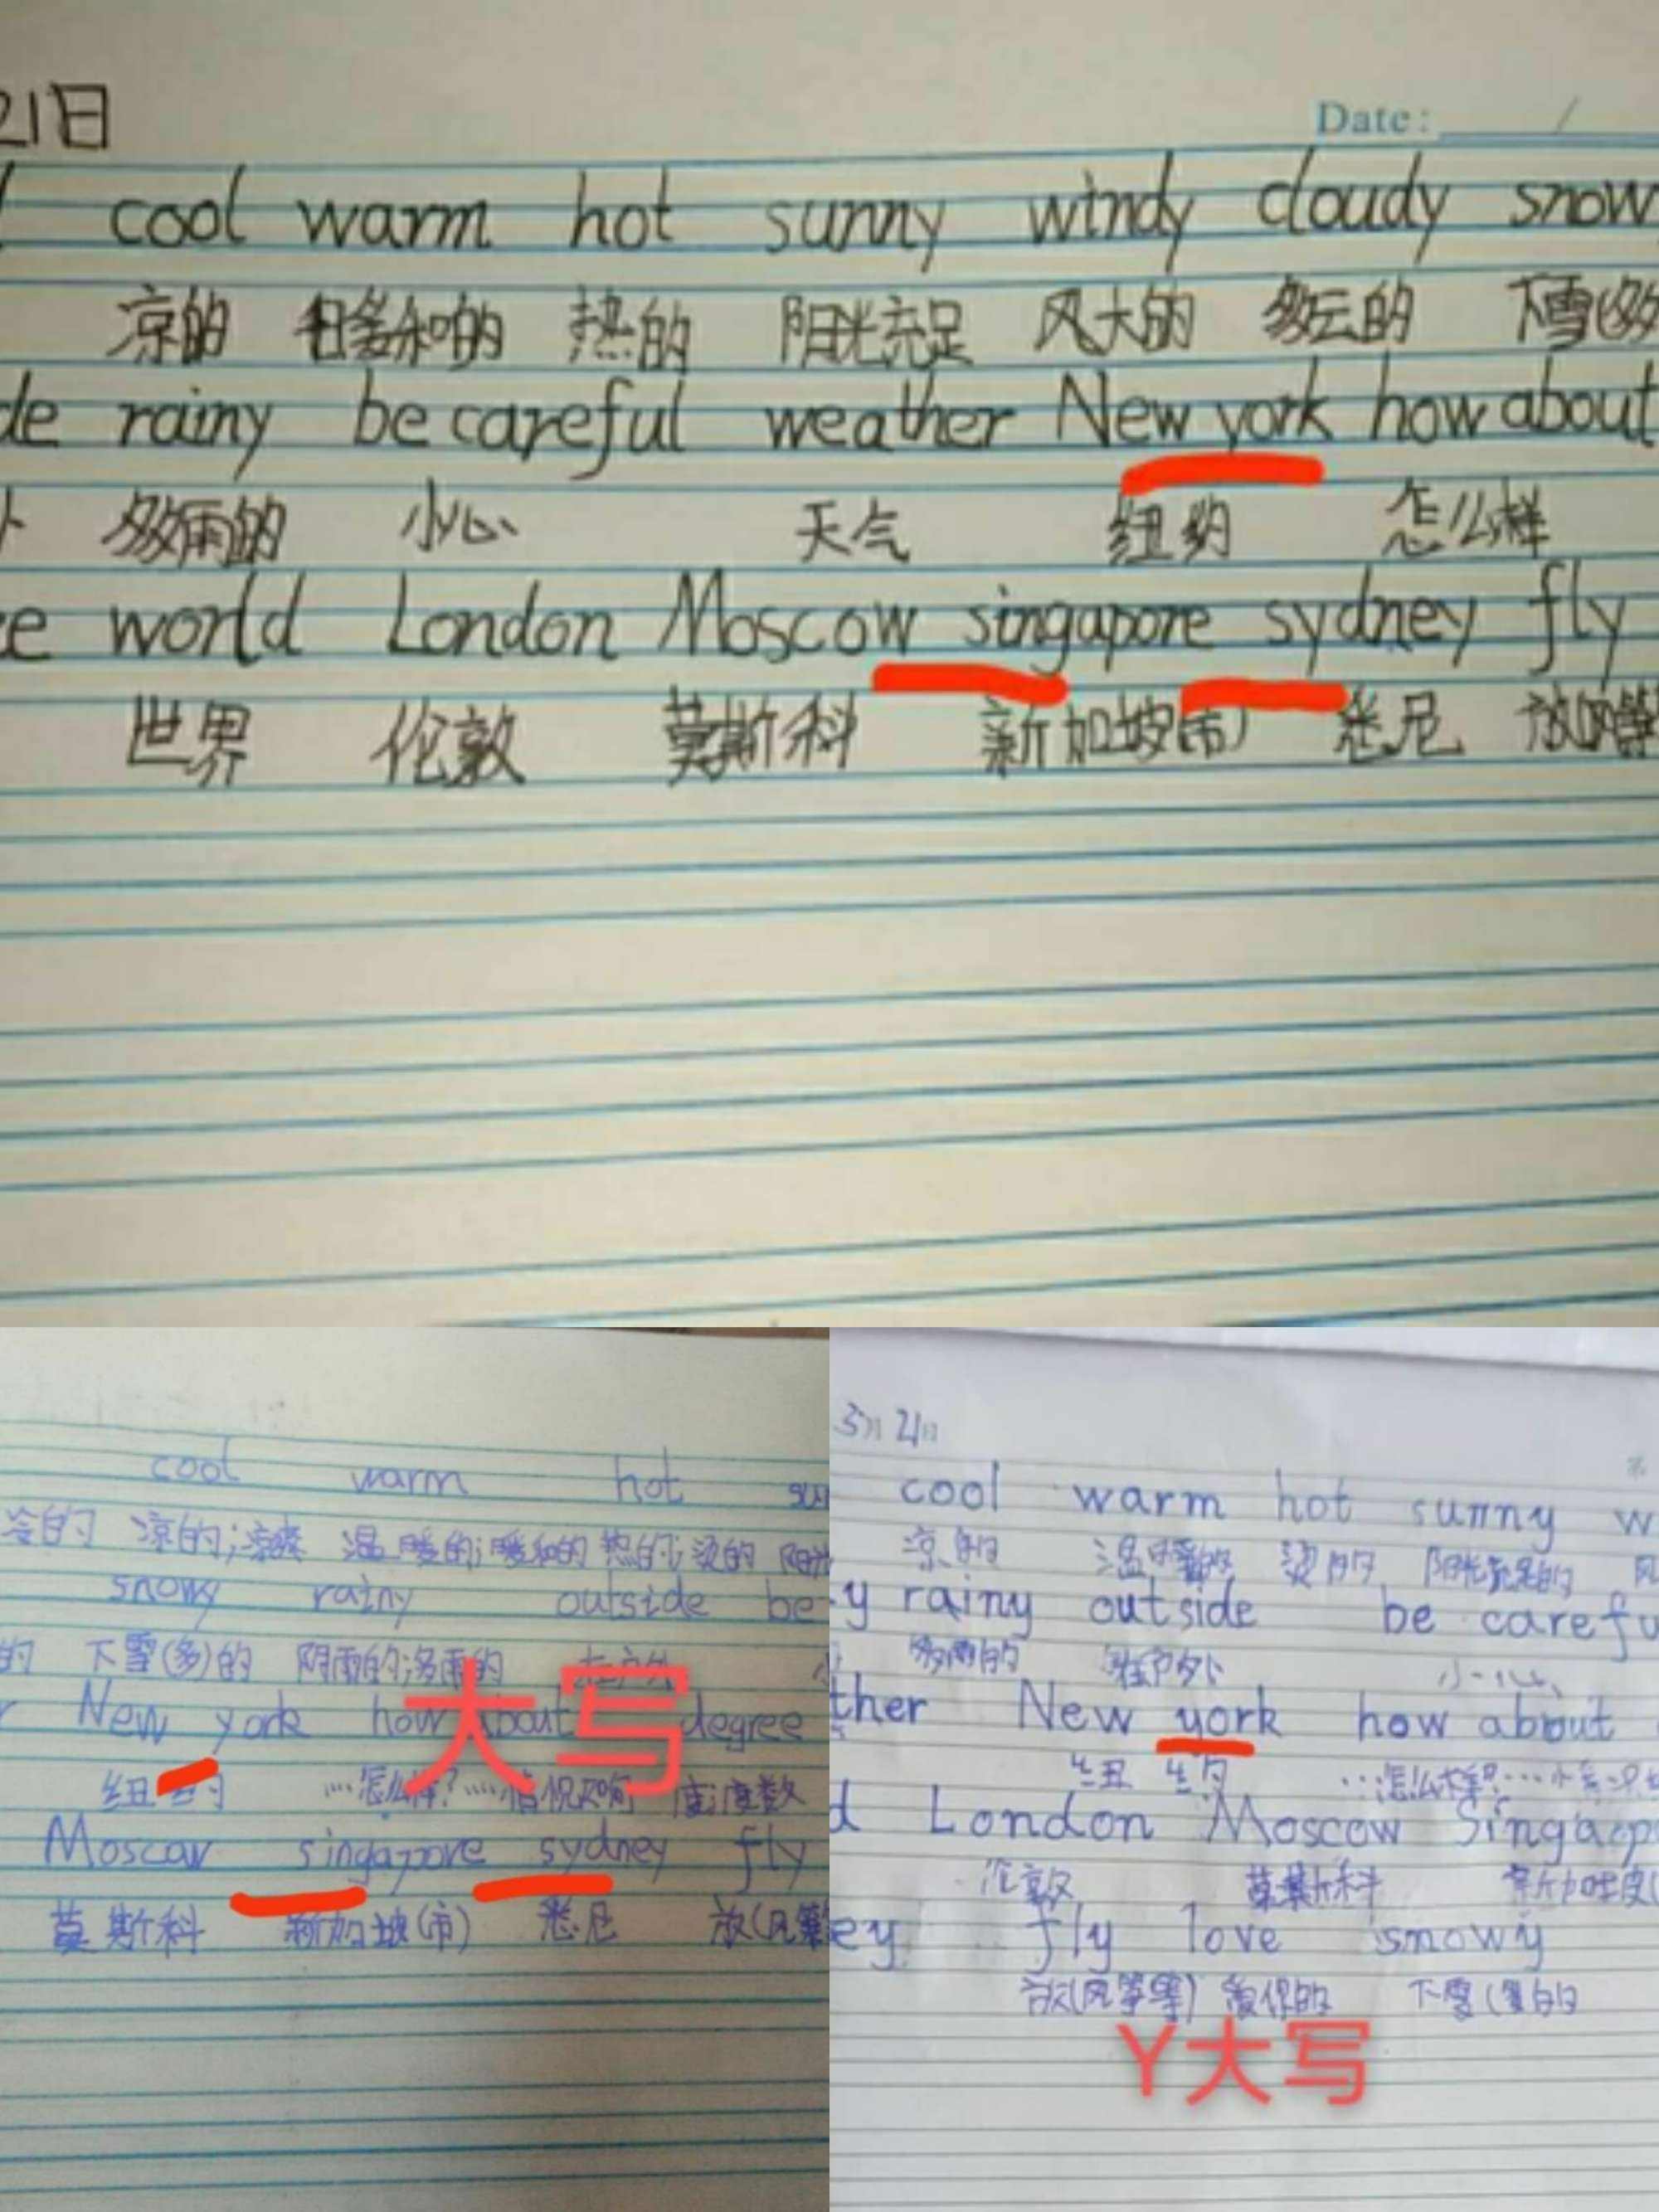 21日
Date: /
cool warm hot sunny windy cloudy snow
凉的 热的 阳光充足 风大的 多云的 下雪(多
de rainy be careful weather New york how about
多雨的 小心 天气 纽约 怎么样
world London Moscow singapore sydney fly
世界 伦敦 莫斯科 新加坡(市) 悉尼 放(风筝
cool warm hot sun
冷的 凉的;凉爽 温暖的;暖和的 热的;烫的 阳光
snowy rainy outside be
的 下雪(多)的 阴雨的;多雨的 在户外
大写
New york how about degree
纽约 ……怎么样?……情况如何 度;度数
Moscow singapore sydney fly
莫斯科 新加坡(市) 悉尼 放(风筝
3月21日
cool warm hot sunny w
凉的 温暖的 烫的 阳光充足的 风
y rainy outside be carefu
多雨的 在户外 小心
ther New york how about
纽约 …怎么样?…情况
d London Moscow Singaop
伦敦 莫斯科 新加坡(
ey fly love snowy
放(风筝等) 下雪(多)的
Y大写